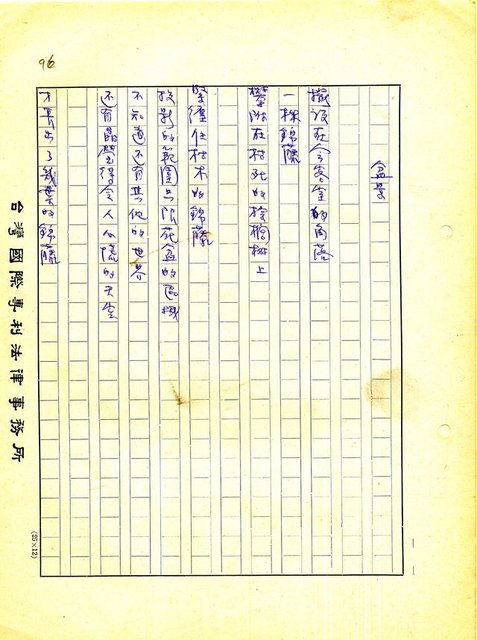 盆景
擺設在會客室的角落
一株錦藤
攀附在枯死的桧榴樹上
緊纏住枯木的錦藤
投影的範圍只限花盆的區域
不知道還有其他的世界
還有晶瑩得令人心慌的天空
才長出了幾葉的錦藤
台灣國際專利法律事務所
(25×12)
96